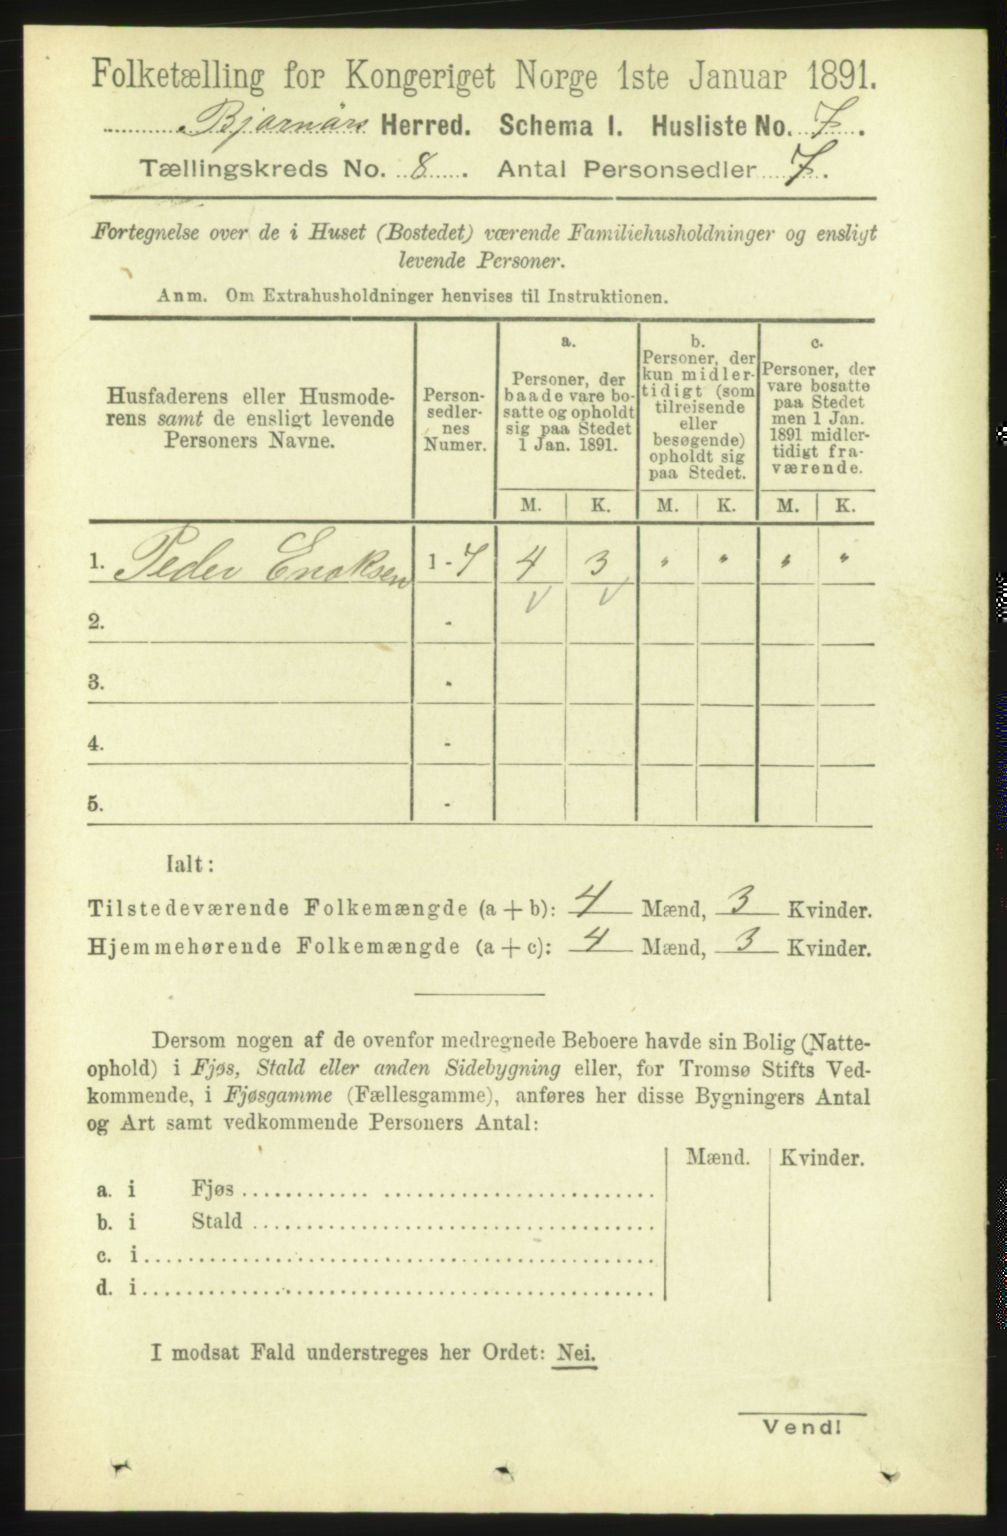 Folketælling for Kongeriget Norge 1ste Januar 1891.
Bjarnör Herred. Schema I. Husliste No. 7.
Tællingskreds No. 8. Antal Personsedler 7.
Fortegnelse over de i Huset (Bostedet) værende Familiehusholdninger og ensligt
levende Personer.
Anm. Om Extrahusholdninger henvises til Instruktionen.
Husfaderens eller Husmode-
rens samt de ensligt levende
Personers Navne.
Person-
sedler-
nes
Numer.
a.
Personer, der
baade vare bo-
satte og opholdt
sig paa Stedet
1 Jan. 1891.
b.
Personer, der
kun midler-
tidigt (som
tilreisende
eller
besøgende)
opholdt sig
paa Stedet.
c.
Personer, der
vare bosatte
paa Stedet
men 1 Jan.
1891 midler-
tidigt fra-
værende.
M. K. M. K. M. K.
1. Peder Enoksen 1 - 7 4 3 " " " "
2. -
3. -
4. -
5. -
Ialt:
Tilstedeværende Folkemængde (a + b): 4 Mænd, 3 Kvinder.
Hjemmehørende Folkemængde (a + c): 4 Mænd, 3 Kvinder.
Dersom nogen af de ovenfor medregnede Beboere havde sin Bolig (Natte-
ophold) i Fjøs, Stald eller anden Sidebygning eller, for Tromsø Stifts Ved-
kommende, i Fjøsgamme (Fællesgamme), anføres her disse Bygningers Antal
og Art samt vedkommende Personers Antal:
Mænd. Kvinder.
a. i Fjøs
b. i Stald
c. i
d. i
I modsat Fald understreges her Ordet: Nei.
Vend!